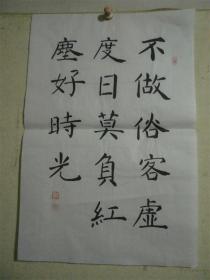 不做俗客虚
度日莫負紅
塵好時光